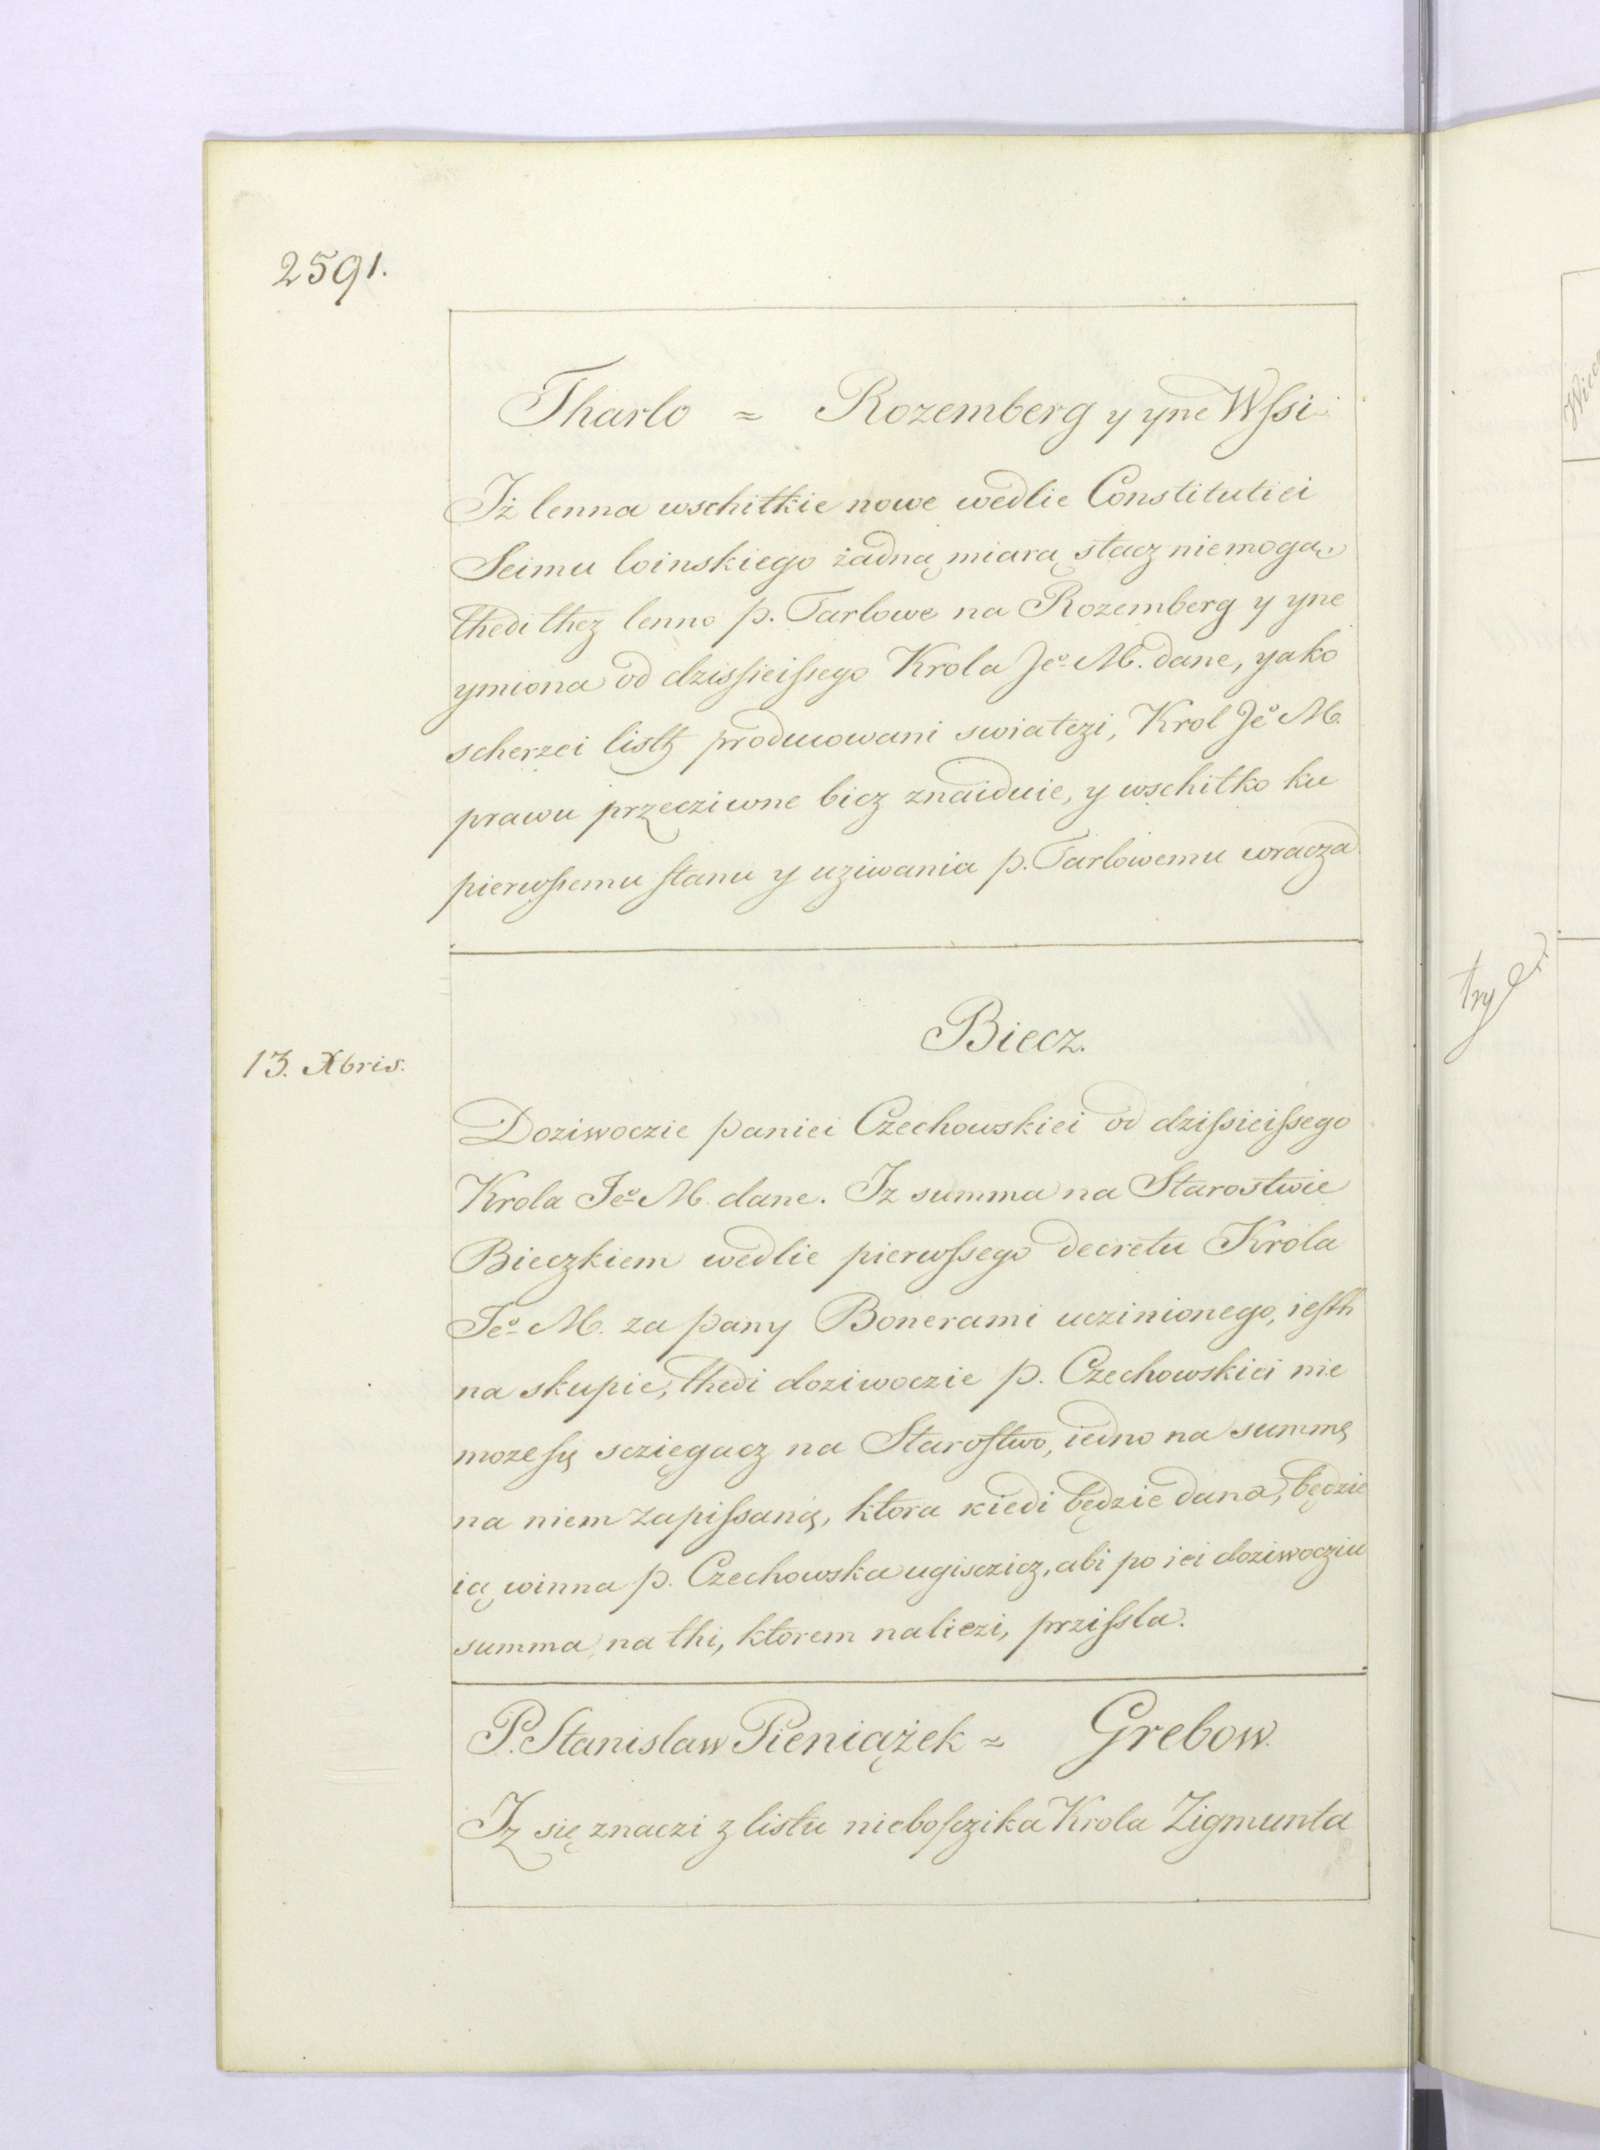 2591.
Tharlo = Rozemberg y yne Wſsi
Iż lenna wschitkie nowe wedlie Constitutiei
Seimu loinskiego żadną miarą stacz niemogą,
thedi thez lenno p. Tarlowe na Rozemberg y yne
ymiona od dzisſieiſsego Krola Jeº M. dane, yako
scherzei listh producowani swiatczi, Krol Jeº M.
prawu przecziwne bicz znaiduie, y wschitko ku
pierwſsemu ſtanu y uziwania p. Tarlowemu wracza
Biecz.
13. Xbris.
Doziwoczie paniei Czechowskiei od dziſsieiſsego
Krola Jeº M. dane. Iz summa na Starostwie
Bieczkiem wedlie pierwſsego decretu Krola
Jeº M. za pany Bonerami uczinionego, ieſth
na skupie, thedi doziwoczie p. Czechowskiei nie
moze ſię sczięgacz na Staroſtwo, iedno na summę
na niem zapiſsaną, ktora kiedi będzie dana, będzie
ią winna p. Czechowska ugisczicz, abi po iei doziwocziu
summa na thi, ktorem naliezi, prziſsla.
P. Stanislaw Pieniążek = Grebow.
Iz się znaczi z listu nieboſczika Krola Zigmunta